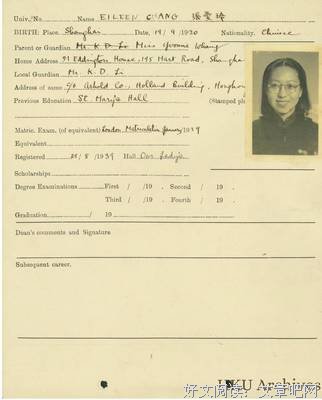 Univ. No. Name EILEEN CHANG 張愛玲
BIRTH: Place, Shanghai Date, 19 / 9 / 1920 Nationality, Chinese
Parent or Guardian Mr. K. D. Li Miss Yvonne Whang
Home Address 91 Eddington House, 195 Hart Road, Shangha
Local Guardian Mr. K. D. Li
Address of same c/o Arnhold Co., Holland Building, Hongkong
Previous Education St. Mary's Hall (Stamped ph
Matric. Exam. (or equivalent) London Matriculation January 1939
Equivalent
Registered 29 / 8 / 1939 Hall Our Lady's
Scholarships
Degree Examinations First / /19 . Second / /19 .
Third / /19 . Fourth / /19 .
Graduation / 19
Dean's comments and Signature
Subsequent career.
Archives
好文阅读:文章吧网